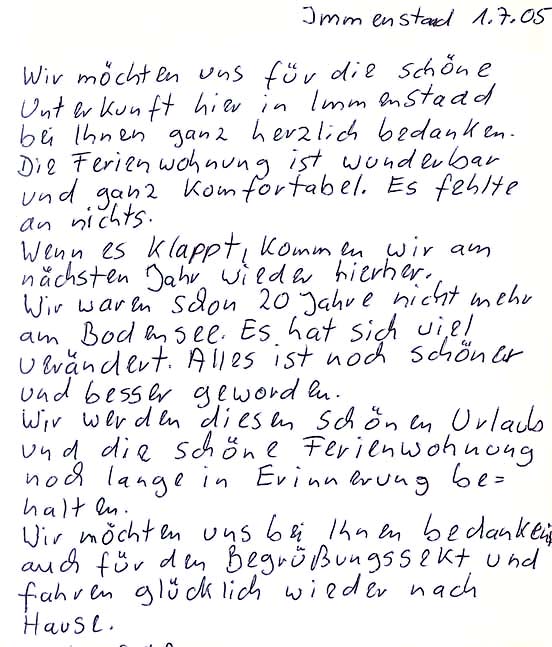 Immenstaad 1.7.05
Wir möchten uns für die schöne
Unterkunft hier in Immenstaad
bei Ihnen ganz herzlich bedanken.
Die Ferienwohnung ist wunderbar
und ganz komfortabel. Es fehlte
an nichts.
Wenn es klappt, kommen wir am
nächsten Jahr wieder hierher.
Wir waren schon 20 Jahre nicht mehr
am Bodensee. Es hat sich viel
verändert. Alles ist noch schöner
und besser geworden.
Wir werden diesen schönen Urlaub
und die schöne Ferienwohnung
noch lange in Erinnerung be=
halten.
Wir möchten uns bei Ihnen bedanken
auch für den Begrüßungssekt und
fahren glücklich wieder nach
Hause.